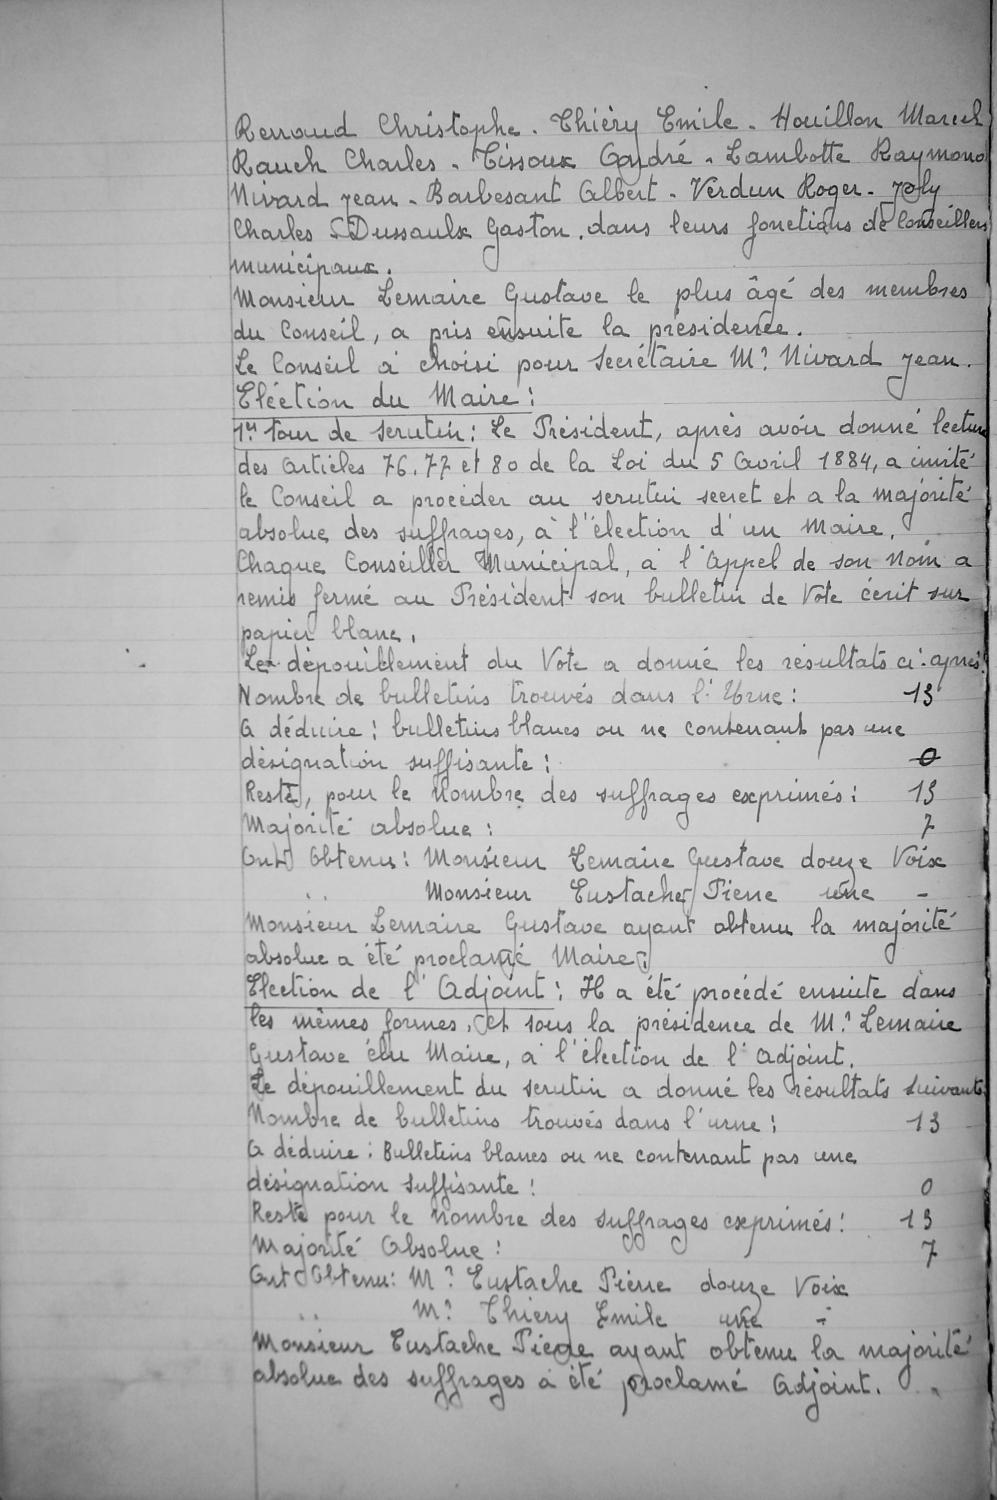 Renaud Christophe. Thièry Emile. Houillon Marcel
Rauch Charles. Tissoux André. Lambotte Raymond
Nivard Jean. Barbesant Albert. Verdun Roger. Joly
Charles Dussaulx Gaston. dans leurs fonctions de Conseillers
municipaux.
Monsieur Lemaire Gustave le plus âgé des membres
du Conseil, a pris ensuite la présidence.
Le Conseil a choisi pour secrétaire Mr Nivard Jean.
Election du Maire :
1er tour de scrutin : Le Président, après avoir donné lecture
des articles 76. 77 et 80 de la Loi du 5 Avril 1884, a invité
le Conseil a procéder au scrutin secret et a la majorité
absolue des suffrages, à l'élection d'un Maire.
Chaque Conseiller Municipal, a l'Appel de son Nom a
remis fermé au Président son bulletin de Vote écrit sur
papier blanc.
Le dépouillement du Vote a donné les résultats ci-après:
Nombre de bulletins trouvés dans l'Urne : 13
A déduire : bulletins blancs ou ne contenant pas une
désignation suffisante : 0
Reste, pour le Nombre des suffrages exprimés : 13
Majorité absolue : 7
Ont Obtenu : Monsieur Lemaire Gustave douze Voix
" Monsieur Eustache Pierre une -
Monsieur Lemaire Gustave ayant obtenu la majorité
absolue a été proclamé Maire.
Election de l'Adjoint : Il a été procédé ensuite dans
les mêmes formes, et sous la présidence de Mr Lemaire
Gustave élu Maire, à l'élection de l'adjoint.
Le dépouillement du scrutin a donné les résultats suivants
Nombre de bulletins trouvés dans l'urne : 13
A déduire : Bulletins blancs ou ne contenant pas une
désignation suffisante : 0
Reste pour le Nombre des suffrages exprimés : 13
Majorité Absolue : 7
Ont Obtenu : Mr Eustache Pierre douze Voix
" Mr Thiery Emile une -
Monsieur Eustache Pierre ayant obtenu la majorité
absolue des suffrages a été proclamé Adjoint.